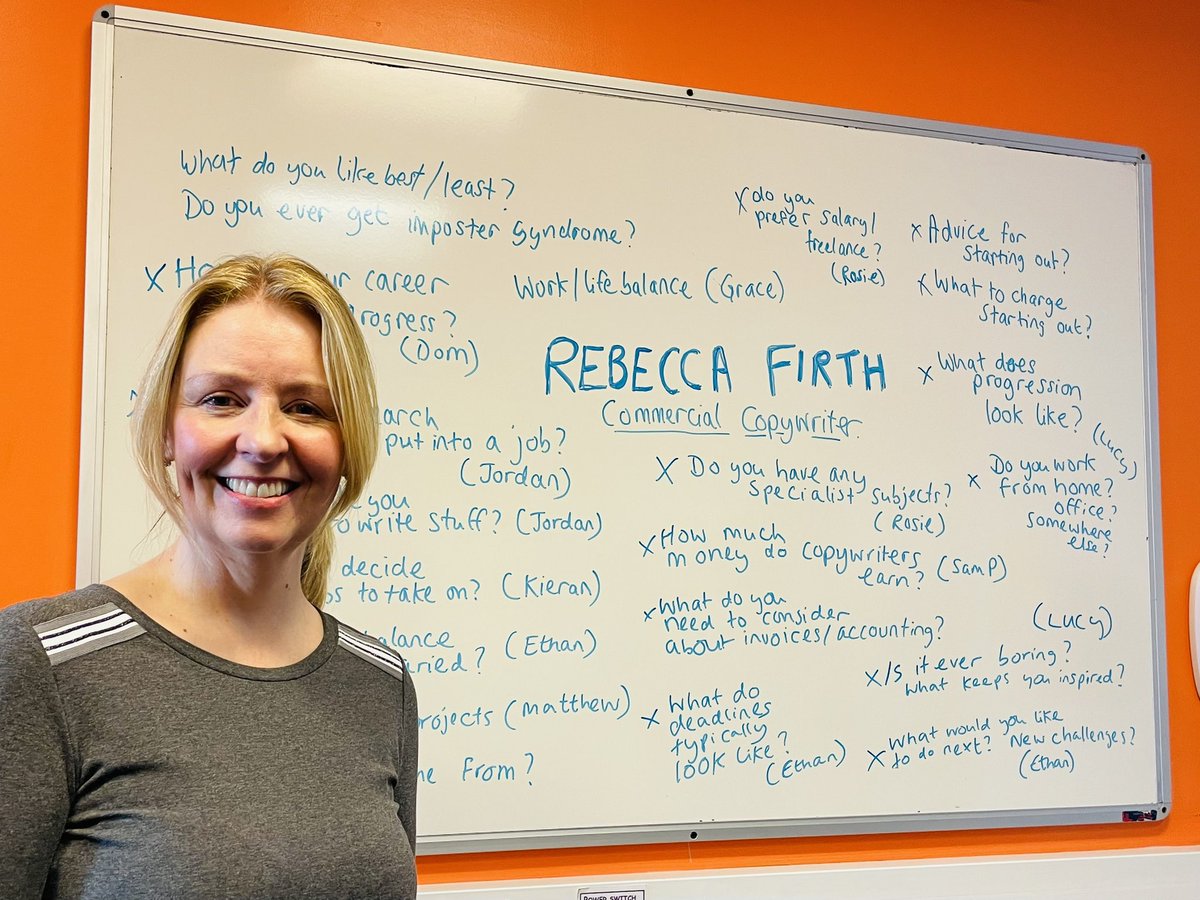 What do you like best/least?
Do you ever get imposter syndrome?
X career
progress?
(Dom)
put into a job?
(Jordan)
you
write stuff? (Jordan)
decide
to take on? (Kieran)
(Ethan)
projects (Matthew)
from?
Work/life balance (Grace)
REBECCA FIRTH
Commercial Copywriter
X Do you have any
specialist subjects?
(Rosie)
X How much
money do copywriters
earn? (Sam P)
X What do you
need to consider
about invoices/accounting?
X What do
deadlines
typically
look like?
(Ethan)
X do you
prefer salary/
freelance?
(Rosie)
X Advice for
starting out?
X What to charge
starting out?
X What does
progression
look like?
(Lucy)
X Do you work
from home?
office?
somewhere
else?
(Lucy)
X Is it ever boring?
What keeps you inspired?
X What would you like
to do next? New challenges?
(Ethan)
POWER SWITCH